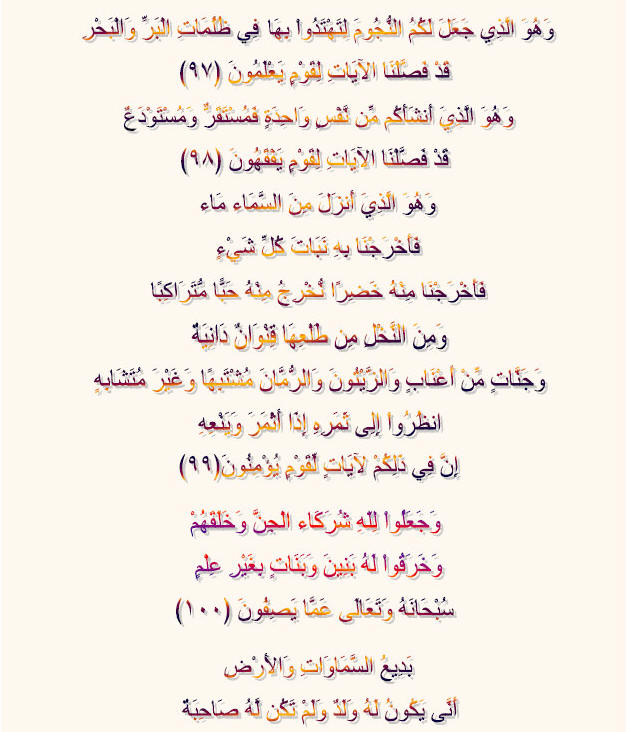 وَهُوَ الَّذِي جَعَلَ لَكُمُ النُّجُومَ لِتَهْتَدُواْ بِهَا فِي ظُلُمَاتِ الْبَرِّ وَالْبَحْرِ
قَدْ فَصَّلْنَا الآيَاتِ لِقَوْمٍ يَعْلَمُونَ (٩٧)
وَهُوَ الَّذِيَ أَنشَأَكُم مِّن نَّفْسٍ وَاحِدَةٍ فَمُسْتَقَرٌّ وَمُسْتَوْدَعٌ
قَدْ فَصَّلْنَا الآيَاتِ لِقَوْمٍ يَفْقَهُونَ (٩٨)
وَهُوَ الَّذِيَ أَنزَلَ مِنَ السَّمَاء مَاء
فَأَخْرَجْنَا بِهِ نَبَاتَ كُلِّ شَيْءٍ
فَأَخْرَجْنَا مِنْهُ خَضِرًا نُّخْرِجُ مِنْهُ حَبًّا مُّتَرَاكِبًا
وَمِنَ النَّخْلِ مِن طَلْعِهَا قِنْوَانٌ دَانِيَةٌ
وَجَنَّاتٍ مِّنْ أَعْنَابٍ وَالزَّيْتُونَ وَالرُّمَّانَ مُشْتَبِهًا وَغَيْرَ مُتَشَابِهٍ
انظُرُواْ إِلِى ثَمَرِهِ إِذَا أَثْمَرَ وَيَنْعِهِ
إِنَّ فِي ذَلِكُمْ لآيَاتٍ لِّقَوْمٍ يُؤْمِنُونَ(٩٩)
وَجَعَلُواْ لِلّهِ شُرَكَاء الْجِنَّ وَخَلَقَهُمْ
وَخَرَقُواْ لَهُ بَنِينَ وَبَنَاتٍ بِغَيْرِ عِلْمٍ
سُبْحَانَهُ وَتَعَالَى عَمَّا يَصِفُونَ (١٠٠)
بَدِيعُ السَّمَاوَاتِ وَالأَرْضِ
أَنَّى يَكُونُ لَهُ وَلَدٌ وَلَمْ تَكُن لَّهُ صَاحِبَةٌ